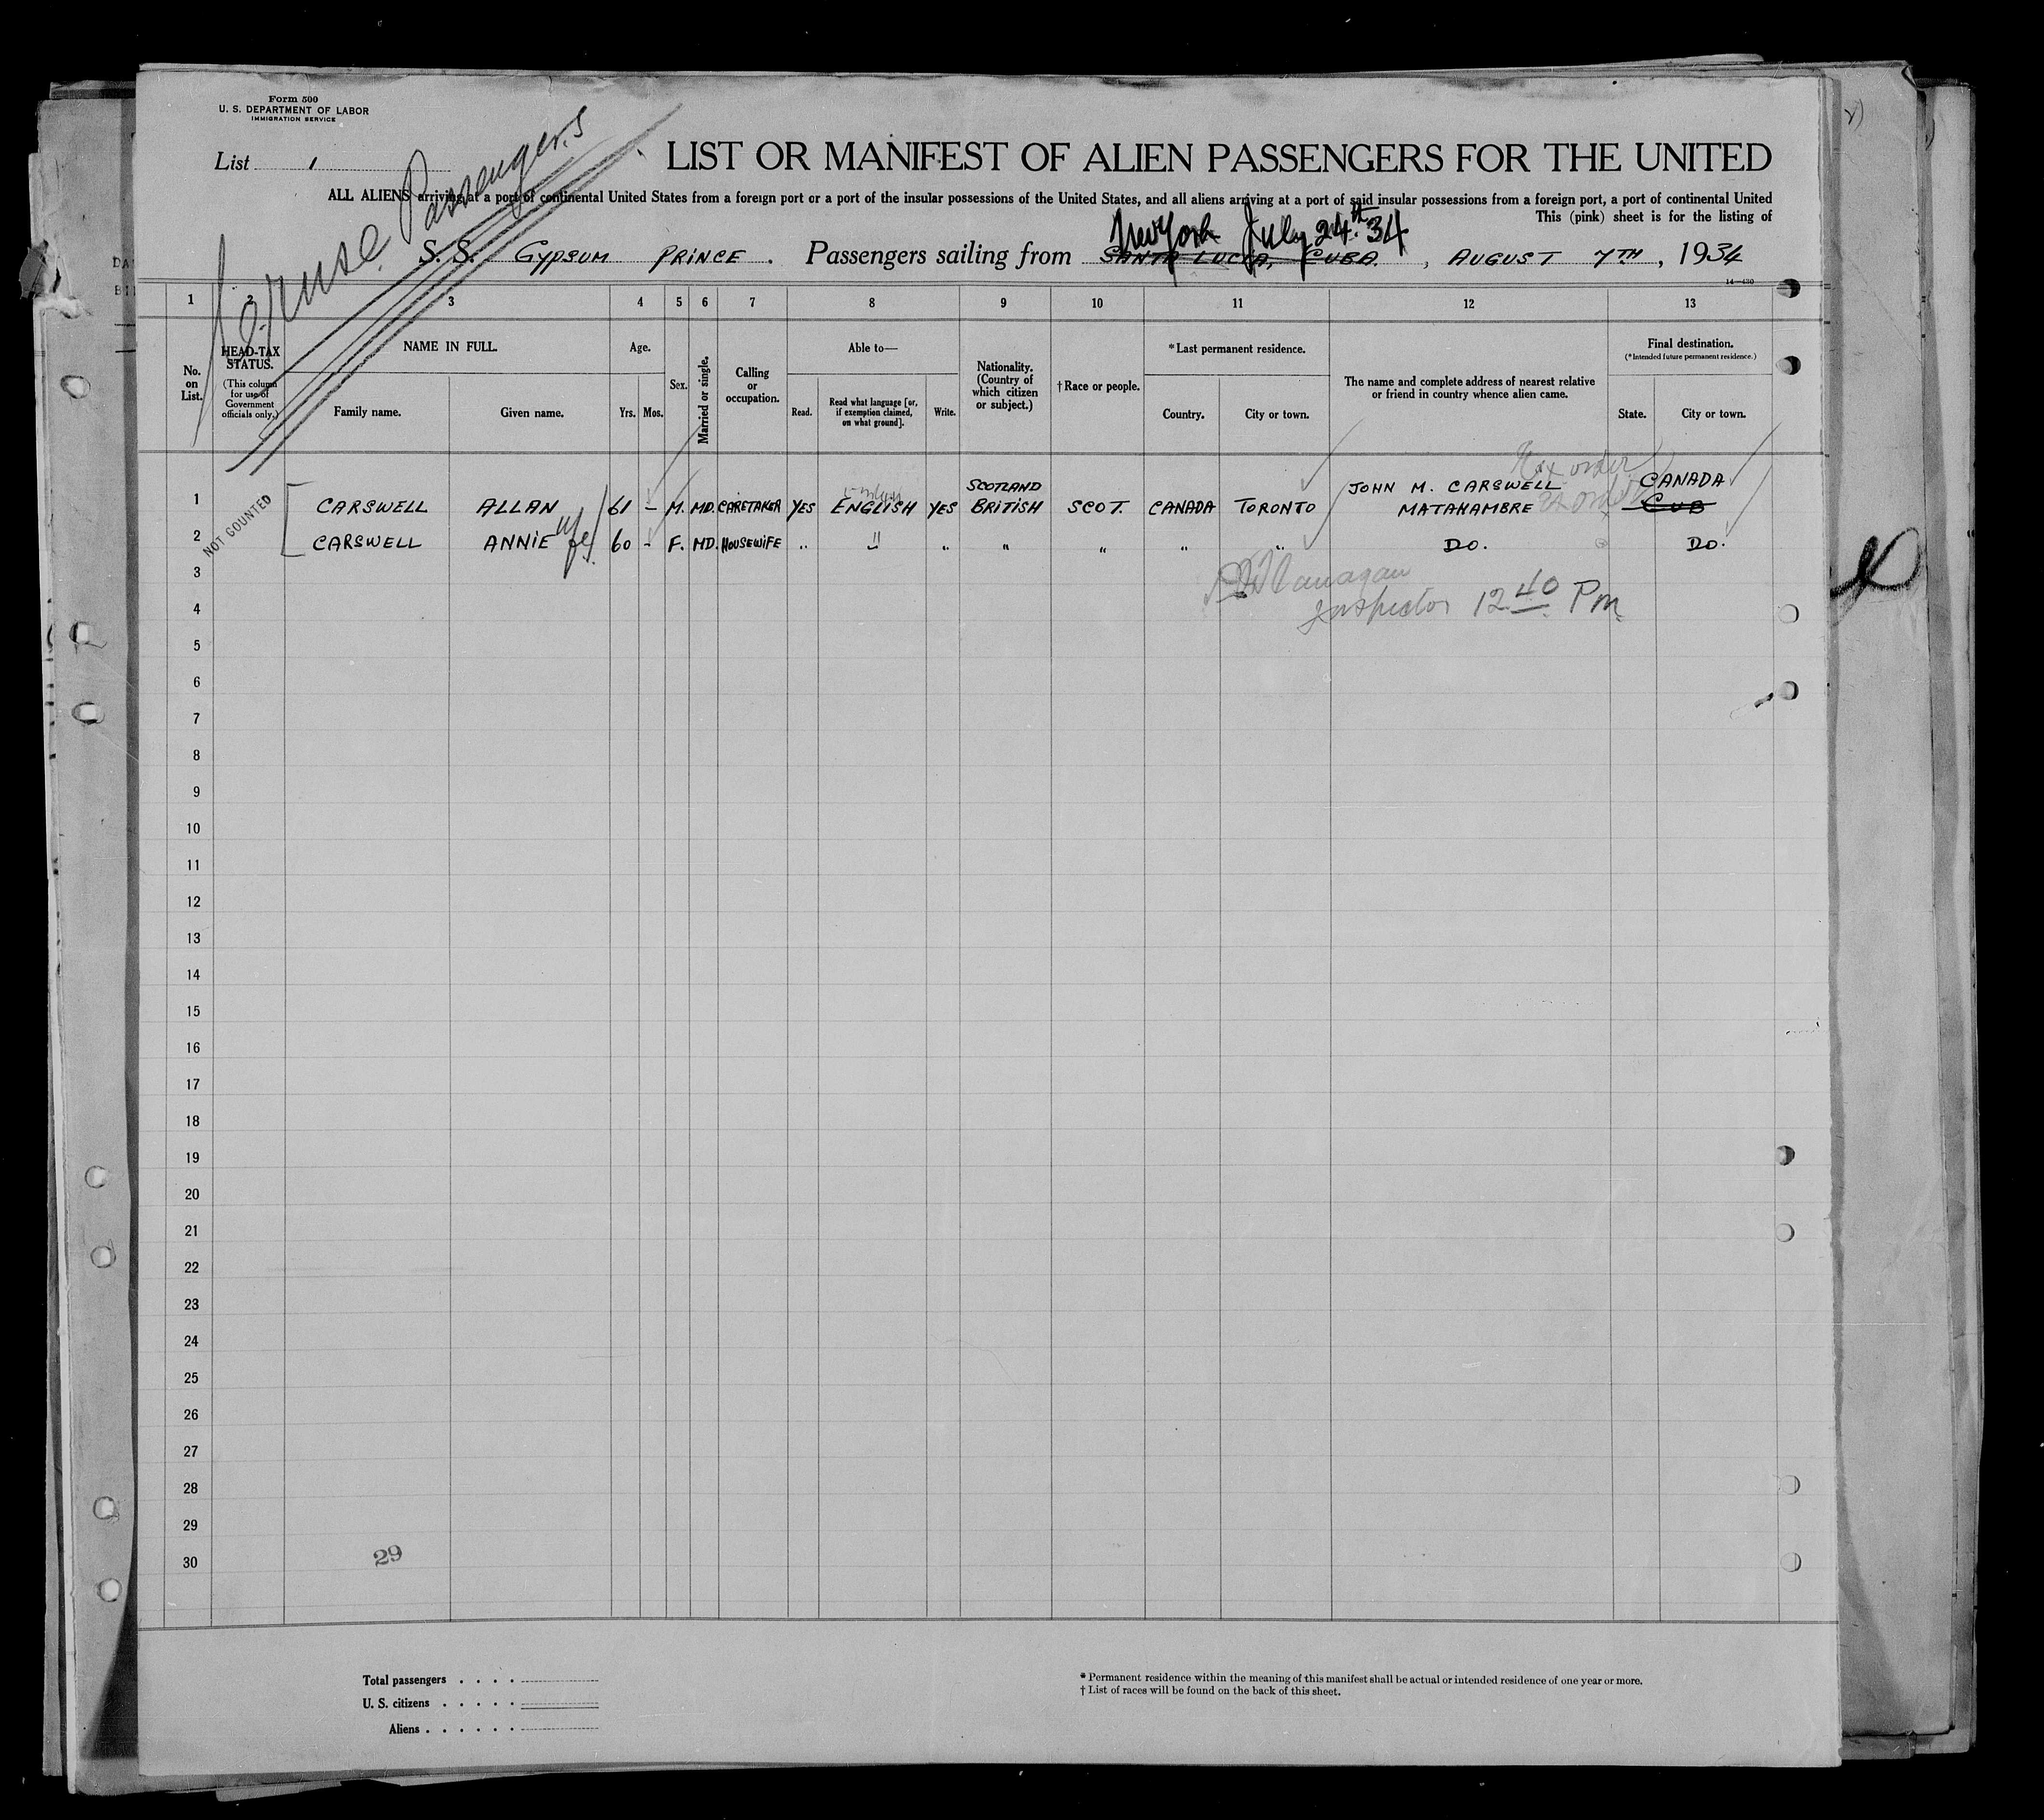 Form 500
U. S. DEPARTMENT OF LABOR
IMMIGRATION SERVICE
List 1
Passengers
LIST OR MANIFEST OF ALIEN PASSENGERS FOR THE UNITED
ALL ALIENS arriving at a port of continental United States from a foreign port or a port of the insular possessions of the United States, and all aliens arriving at a port of said insular possessions from a foreign port, a port of continental United
This (pink) sheet is for the listing of
New York July 24th 34
S. S. GYPSUM PRINCE. Passengers sailing from SANTA LUCIA, CUBA, AUGUST 7TH, 1934
14—430
1 2 3 4 5 6 7 8 9 10 11 12 13
No. on List.
HEAD-TAX STATUS.
(This column for use of Government officials only.)
NAME IN FULL.
Family name.
Given name.
Age.
Yrs. Mos.
Sex.
Married or single.
Calling or occupation.
Able to—
Read.
Read what language [or, if exemption claimed, on what ground].
Write.
Nationality. (Country of which citizen or subject.)
† Race or people.
* Last permanent residence.
Country.
City or town.
The name and complete address of nearest relative or friend in country whence alien came.
Final destination.
(* Intended future permanent residence.)
State.
City or town.
NOT COUNTED
SCOTLAND
1 CARSWELL ALLAN 61 – M. MD. CARETAKER YES ENGLISH YES BRITISH SCOT. CANADA TORONTO JOHN M. CARSWELL MATAHAMBRE CANADA CUB
2 CARSWELL ANNIE wife 60 - F. MD. HOUSEWIFE " " " " " " " DO. DO.
3
Inspector 12 40 Pm
4
5
6
7
8
9
10
11
12
13
14
15
16
17
18
19
20
21
22
23
24
25
26
27
28
29
30
29
Total passengers . . . .
U. S. citizens . . . . .
Aliens . . . . . .
* Permanent residence within the meaning of this manifest shall be actual or intended residence of one year or more.
† List of races will be found on the back of this sheet.